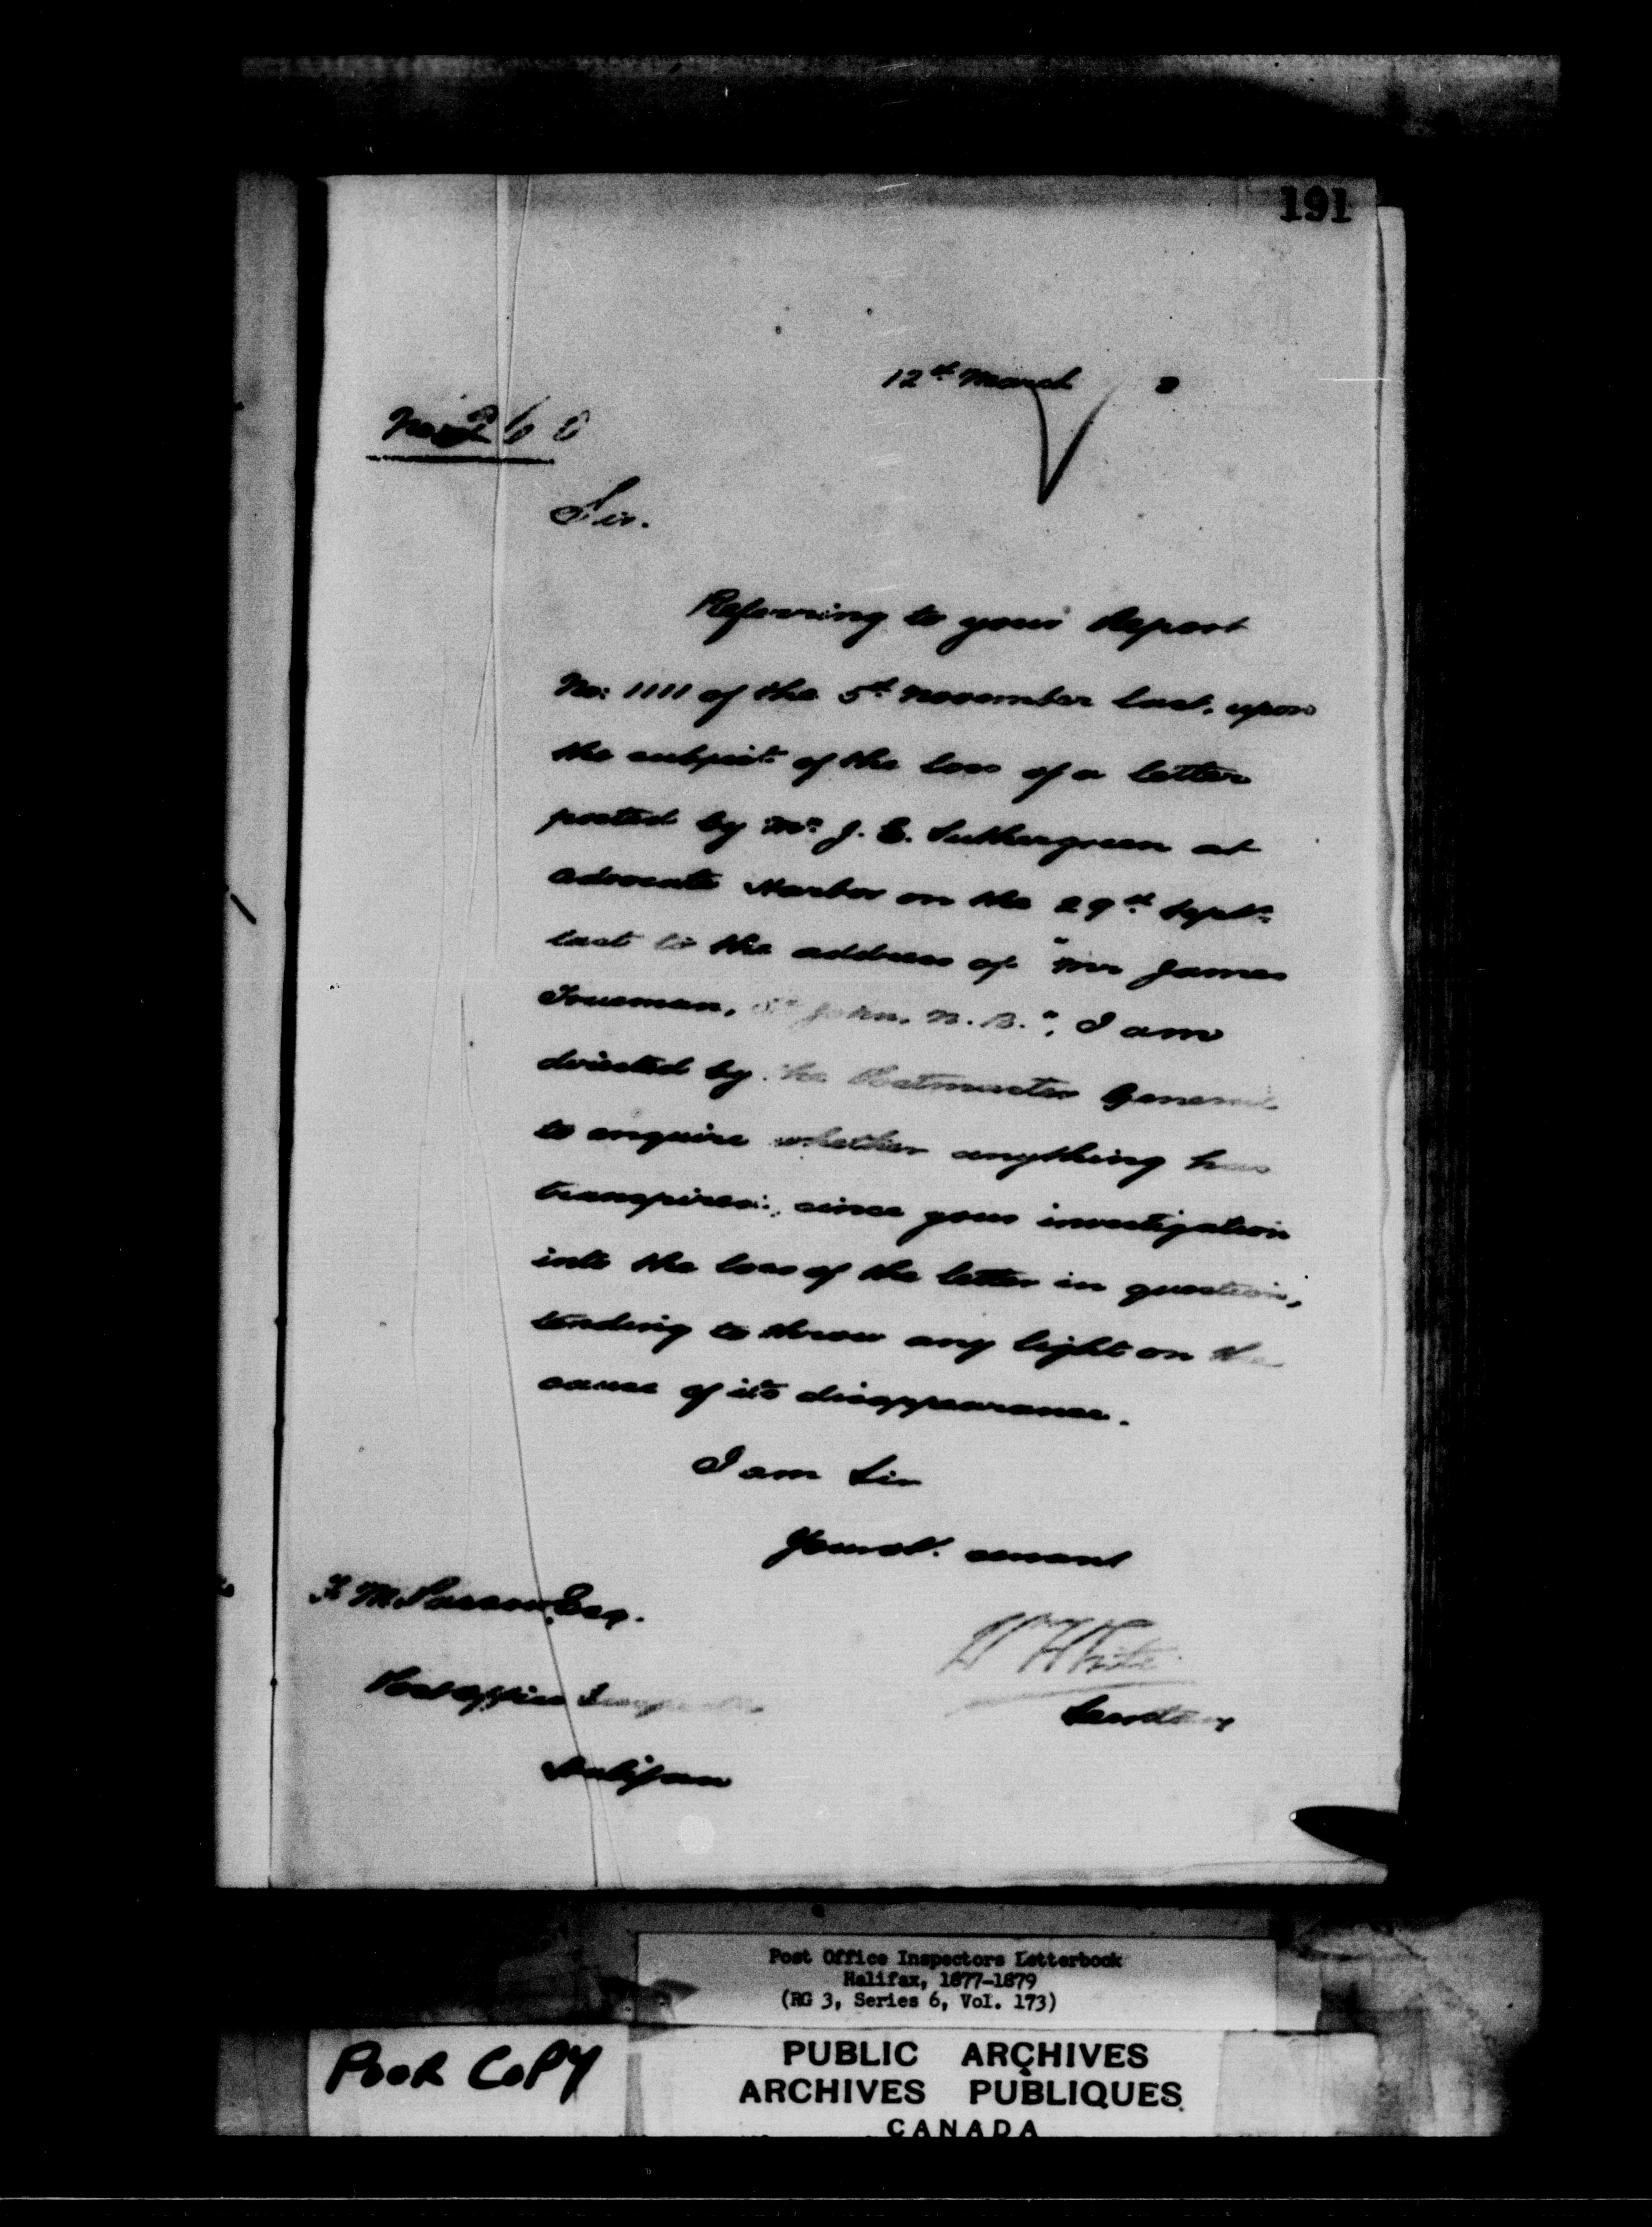 191
12th March 8
No. 260
Sir.
Referring to your Report
No: 1111 of the 5th November last, upon
the subject of the loss of a letter
posted by Mr. J. E. Suthergreen at
Advocate Harbor on the 29th Septr.
last to the address of "Mr James
Trueman, St. John, N.B.", I am
directed by the Postmaster General
to enquire whether anything has
transpired, since your investigation
into the loss of the letter in question,
tending to throw any light on the
cause of its disappearance.
I am Sir
Your obt. servant
W White
Secretary
F. M. Passow, Esq.
Post Office Inspector
Halifax
Post Office Inspectors Letterbook
Halifax, 1877-1879
(RG 3, Series 6, Vol. 173)
POOR COPY
PUBLIC ARCHIVES
ARCHIVES PUBLIQUES
CANADA